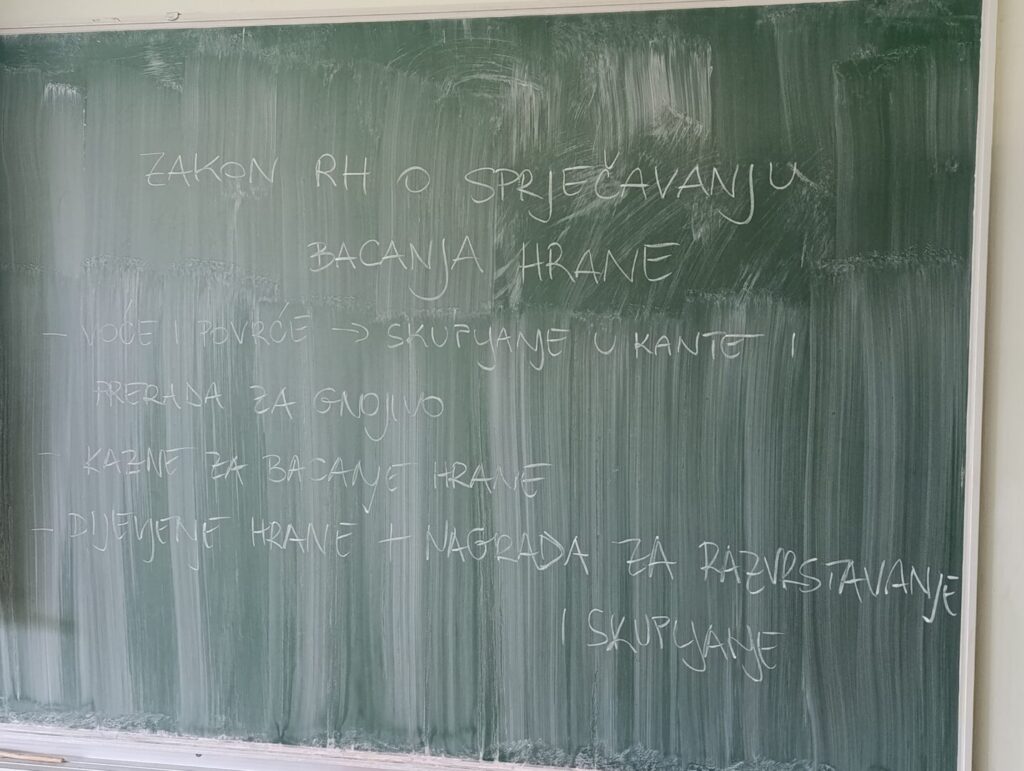 ZAKON RH O SPRJEČAVANJU
BACANJA HRANE
- VOĆE I POVRĆE → SKUPLJANJE U KANTE I
PRERADA ZA GNOJIVO
- KAZNE ZA BACANJE HRANE
- DIJELJENE HRANE + NAGRADA ZA RAZVRSTAVANJE
I SKUPLJANJE